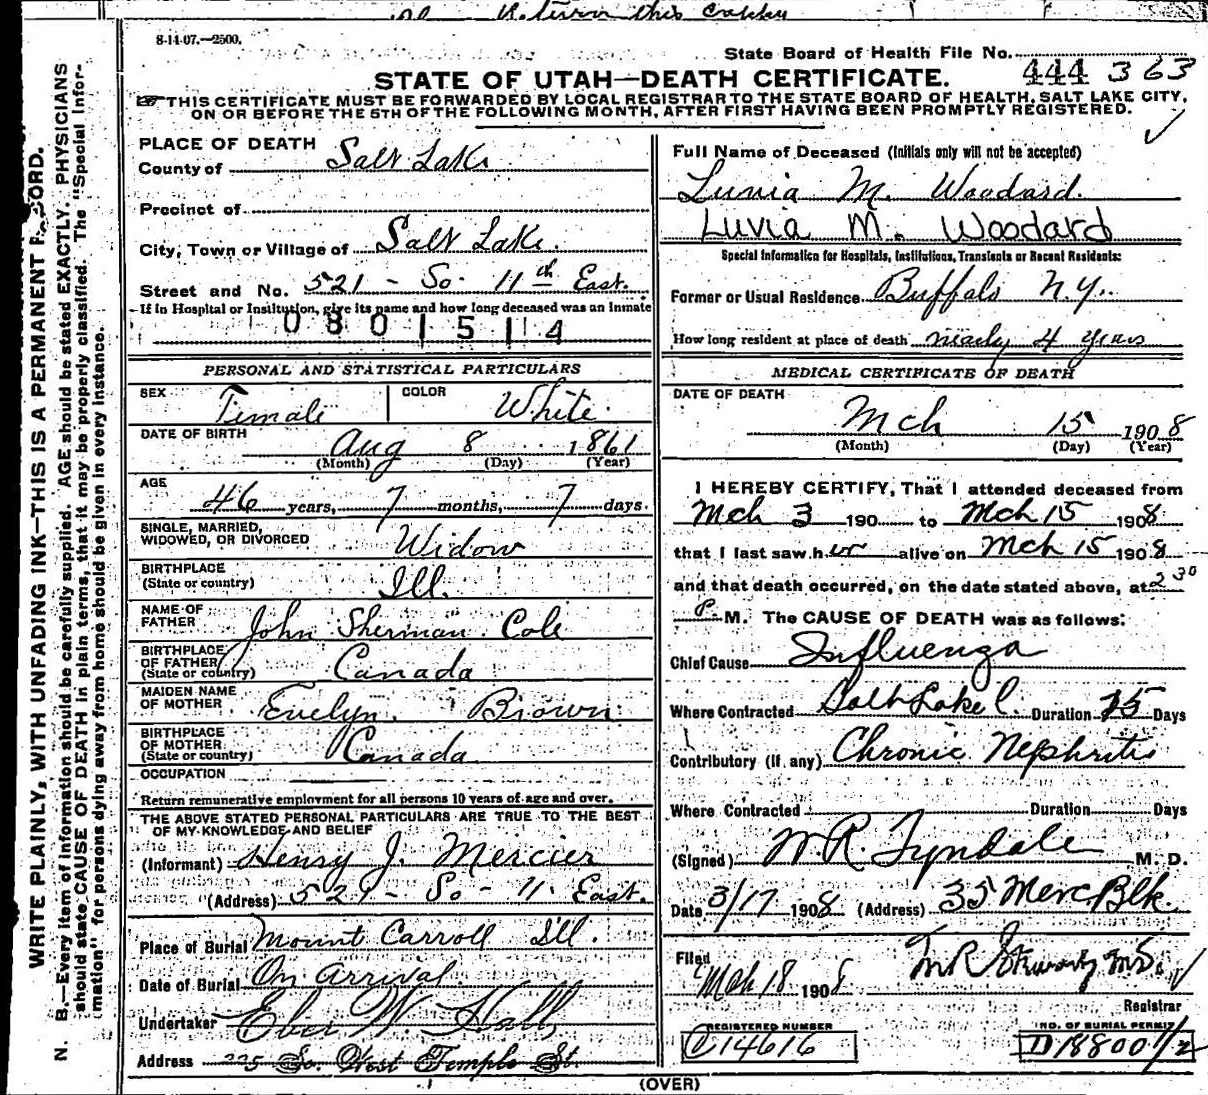 Return this copy
8-14-07.—2500.
State Board of Health File No. 444 363
STATE OF UTAH—DEATH CERTIFICATE.
THIS CERTIFICATE MUST BE FORWARDED BY LOCAL REGISTRAR TO THE STATE BOARD OF HEALTH, SALT LAKE CITY,
ON OR BEFORE THE 5TH OF THE FOLLOWING MONTH, AFTER FIRST HAVING BEEN PROMPTLY REGISTERED.
WRITE PLAINLY, WITH UNFADING INK—THIS IS A PERMANENT RECORD.
N. B.—Every item of information should be carefully supplied. AGE should be stated EXACTLY. PHYSICIANS
should state CAUSE OF DEATH in plain terms, that it may be properly classified. The "Special Infor-
mation" for persons dying away from home should be given in every instance.
PLACE OF DEATH
County of Salt Lake
Precinct of
City, Town or Village of Salt Lake.
Street and No. 521 - So - 11th East.
If in Hospital or Institution, give its name and how long deceased was an inmate
0801514
PERSONAL AND STATISTICAL PARTICULARS
SEX Female COLOR White
DATE OF BIRTH Aug 8 1861
(Month) (Day) (Year)
AGE
46 years, 7 months, 7 days.
SINGLE, MARRIED,
WIDOWED, OR DIVORCED Widow
BIRTHPLACE
(State or country) Ill.
NAME OF
FATHER John Sherman Cole
BIRTHPLACE
OF FATHER
(State or country) Canada
MAIDEN NAME
OF MOTHER Evelyn Brown
BIRTHPLACE
OF MOTHER
(State or country) Canada
OCCUPATION
Return remunerative employment for all persons 10 years of age and over.
THE ABOVE STATED PERSONAL PARTICULARS ARE TRUE TO THE BEST
OF MY KNOWLEDGE AND BELIEF
(Informant) Henry J. Mercier
(Address) 521 - So - 11 East.
Place of Burial Mount Carroll Ill.
Date of Burial On arrival
Undertaker Eber W. Hall
Address 225 So. West Temple St.
Full Name of Deceased (Initials only will not be accepted)
Luvia M. Woodard.
Luvia M. Woodard
Special Information for Hospitals, Institutions, Transients or Recent Residents:
Former or Usual Residence Buffalo N.Y.
How long resident at place of death nearly 4 years
MEDICAL CERTIFICATE OF DEATH
DATE OF DEATH
Mch 15 1908
(Month) (Day) (Year)
I HEREBY CERTIFY, That I attended deceased from
Mch 3 190 to Mch 15 1908
that I last saw her alive on Mch 15 1908
and that death occurred, on the date stated above, at 2 30
P M. The CAUSE OF DEATH was as follows:
Chief Cause Influenza
Where Contracted Salt Lake C. Duration 15 Days
Contributory (if any) Chronic Nephritis
Where Contracted Duration Days
(Signed) W R. Tyndale M. D.
Date 3/17 1908 (Address) 35 Merc. Blk.
Filed
Mch 18 1908
Registrar
REGISTERED NUMBER
C14616
NO. OF BURIAL PERMIT
D18800 1/2
(OVER)